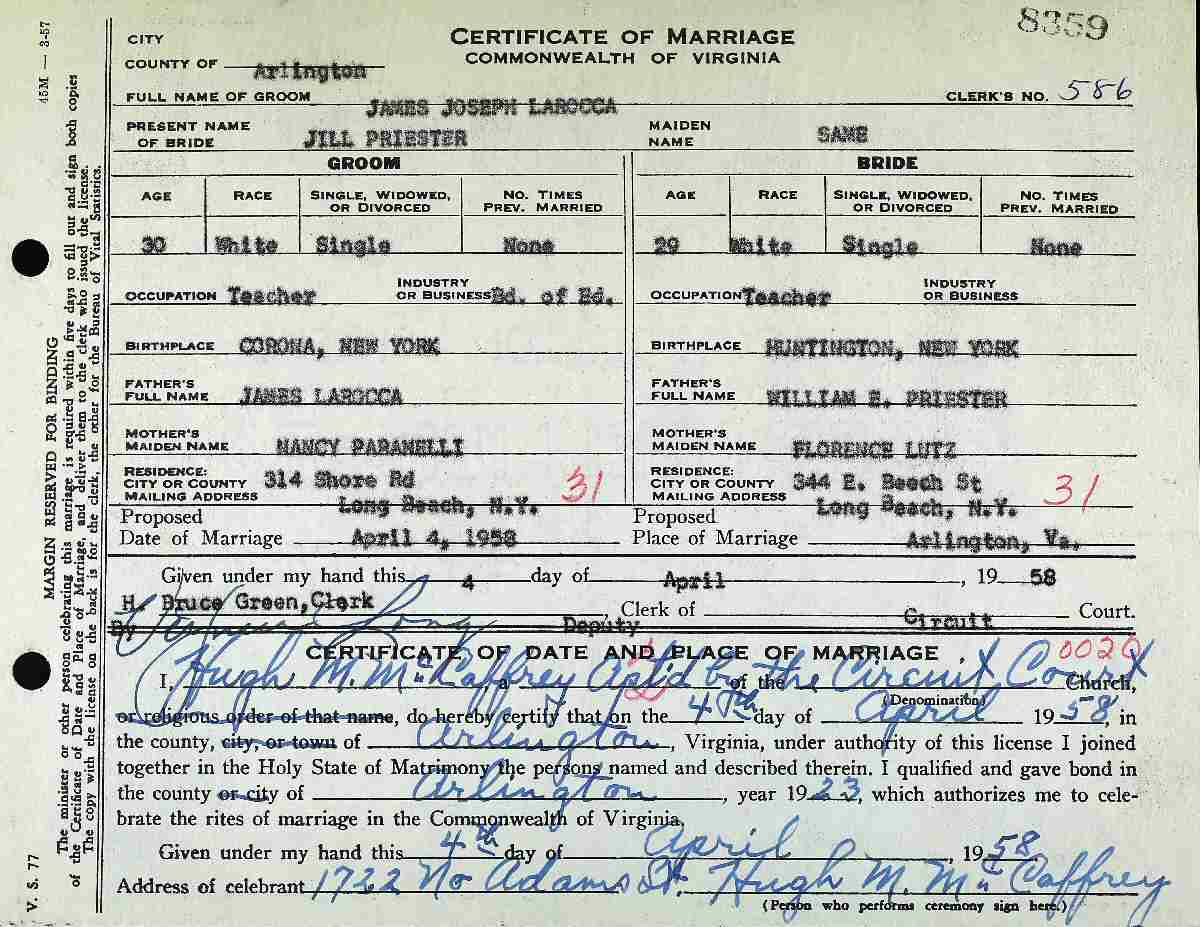 8359
45M — 3-57
CERTIFICATE OF MARRIAGE
COMMONWEALTH OF VIRGINIA
CITY
COUNTY OF Arlington
CLERK'S NO. 586
FULL NAME OF GROOM JAMES JOSEPH LAROCCA
PRESENT NAME OF BRIDE JILL PRIESTER MAIDEN NAME SAME
GROOM BRIDE
AGE RACE SINGLE, WIDOWED, OR DIVORCED NO. TIMES PREV. MARRIED AGE RACE SINGLE, WIDOWED, OR DIVORCED NO. TIMES PREV. MARRIED
30 White Single None 29 White Single None
OCCUPATION Teacher INDUSTRY OR BUSINESS Bd. of Ed. OCCUPATION Teacher INDUSTRY OR BUSINESS
BIRTHPLACE CORONA, NEW YORK BIRTHPLACE HUNTINGTON, NEW YORK
FATHER'S FULL NAME JAMES LAROCCA FATHER'S FULL NAME WILLIAM E. PRIESTER
MOTHER'S MAIDEN NAME NANCY PARANELLI MOTHER'S MAIDEN NAME FLORENCE LUTZ
RESIDENCE: CITY OR COUNTY MAILING ADDRESS 314 Shore Rd Long Beach, N.Y. 31 RESIDENCE: CITY OR COUNTY MAILING ADDRESS 344 E. Beech St Long Beach, N.Y. 31
Proposed Date of Marriage April 4, 1958 Proposed Place of Marriage Arlington, Va.
Given under my hand this 4 day of April, 1958
H. Bruce Green, Clerk, Clerk of Circuit Court.
By Long Deputy
CERTIFICATE OF DATE AND PLACE OF MARRIAGE 0020
I, Hugh M. McCaffrey, a Aptd by of the the Circuit Co Church,
(Denomination)
or religious order of that name, do hereby certify that on the 4th day of April 1958, in
the county, city, or town of Arlington, Virginia, under authority of this license I joined
together in the Holy State of Matrimony the persons named and described therein. I qualified and gave bond in
the county or city of Arlington, year 1923, which authorizes me to cele-
brate the rites of marriage in the Commonwealth of Virginia.
Given under my hand this 4th day of April, 1958
Address of celebrant 1722 No Adams St. Hugh M. McCaffrey
(Person who performs ceremony sign here.)
MARGIN RESERVED FOR BINDING
The minister or other person celebrating this marriage is required within five days to fill out and sign both copies
of the Certificate of Date and Place of Marriage, and deliver them to the clerk who issued the license.
The copy with the license on the back is for the clerk, the other for the Bureau of Vital Statistics.
V. S. 77